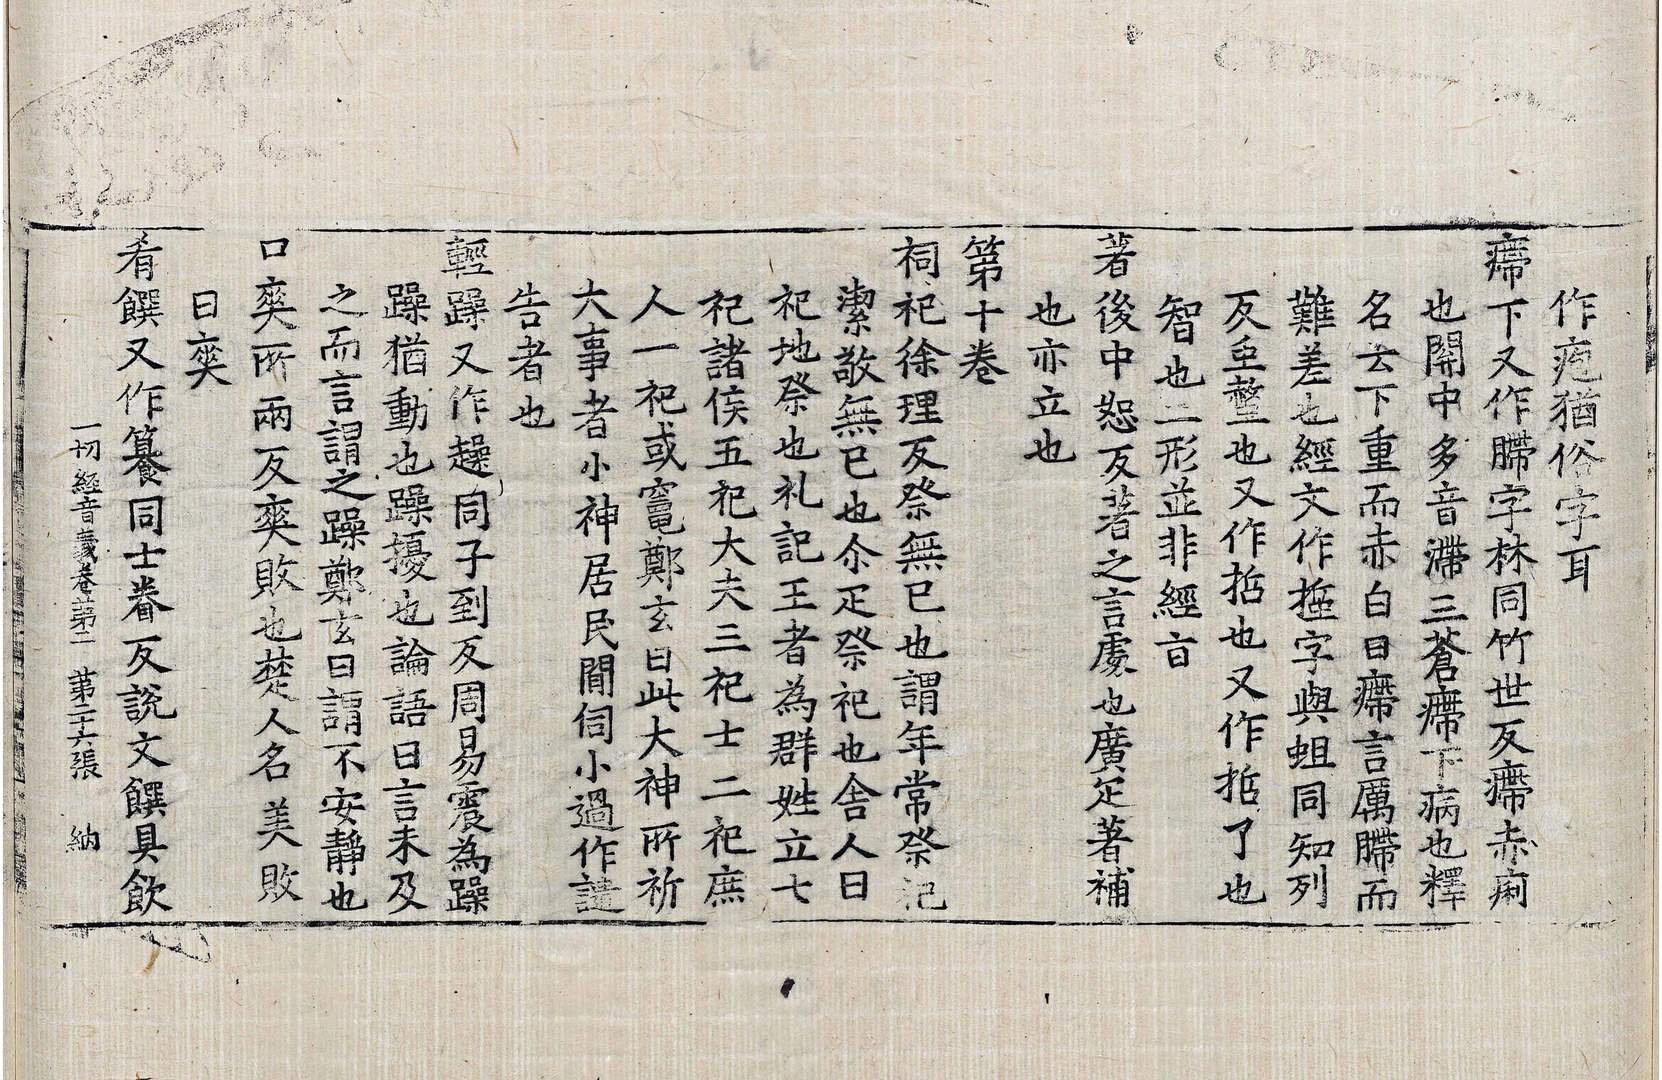 作疱猶俗字耳
㿃下又作𦟩字林同竹世反㿃赤痢
也關中多音滯三蒼㿃下病也釋
名云下重而赤白曰㿃言厲𦟩而
難差也經文作𢱧字與蛆同知列
反𧉀螫也又作哲也又作哲了也
智也二形並非經音
著後中恕反著之言處也廣疋著補
也亦立也
第十卷
祠祀徐理反祭無已也謂年常祭祀
潔敬無已也尒疋祭祀也舍人曰
祀地祭也礼記王者為群姓立七
祀諸侯五祀大夫三祀士二祀庶
人一祀或竈鄭玄曰此大神所祈
大事者小神居民間伺小過作譴
告者也
輕躁又作趮同子到反周易震為躁
躁猶動也躁擾也論語曰言未及
之而言謂之躁鄭玄曰謂不安靜也
口爽所兩反爽敗也楚人名美敗
曰爽
肴饌又作籑同士眷反說文饌具飲
一切經音義卷第二 第二十六張 納